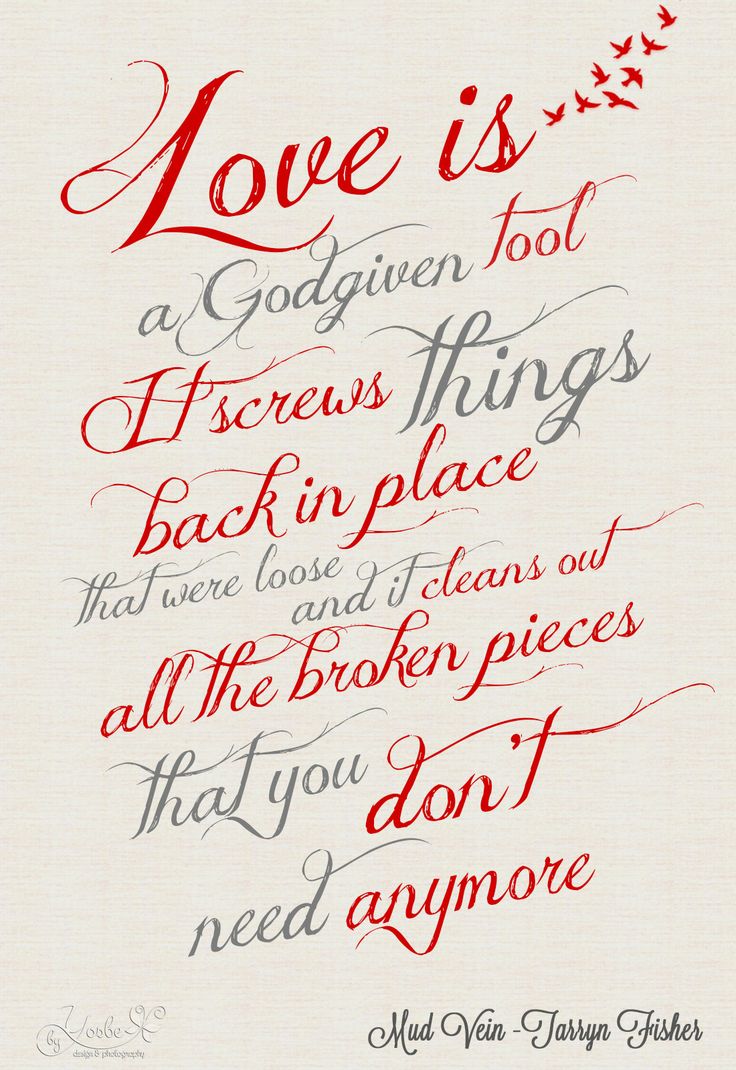 Love is
a Godgiven tool
It screws things
back in place
that were loose
and it cleans out
all the broken pieces
that you don't
need anymore
by
design & photography
Mud Vein - Tarryn Fisher